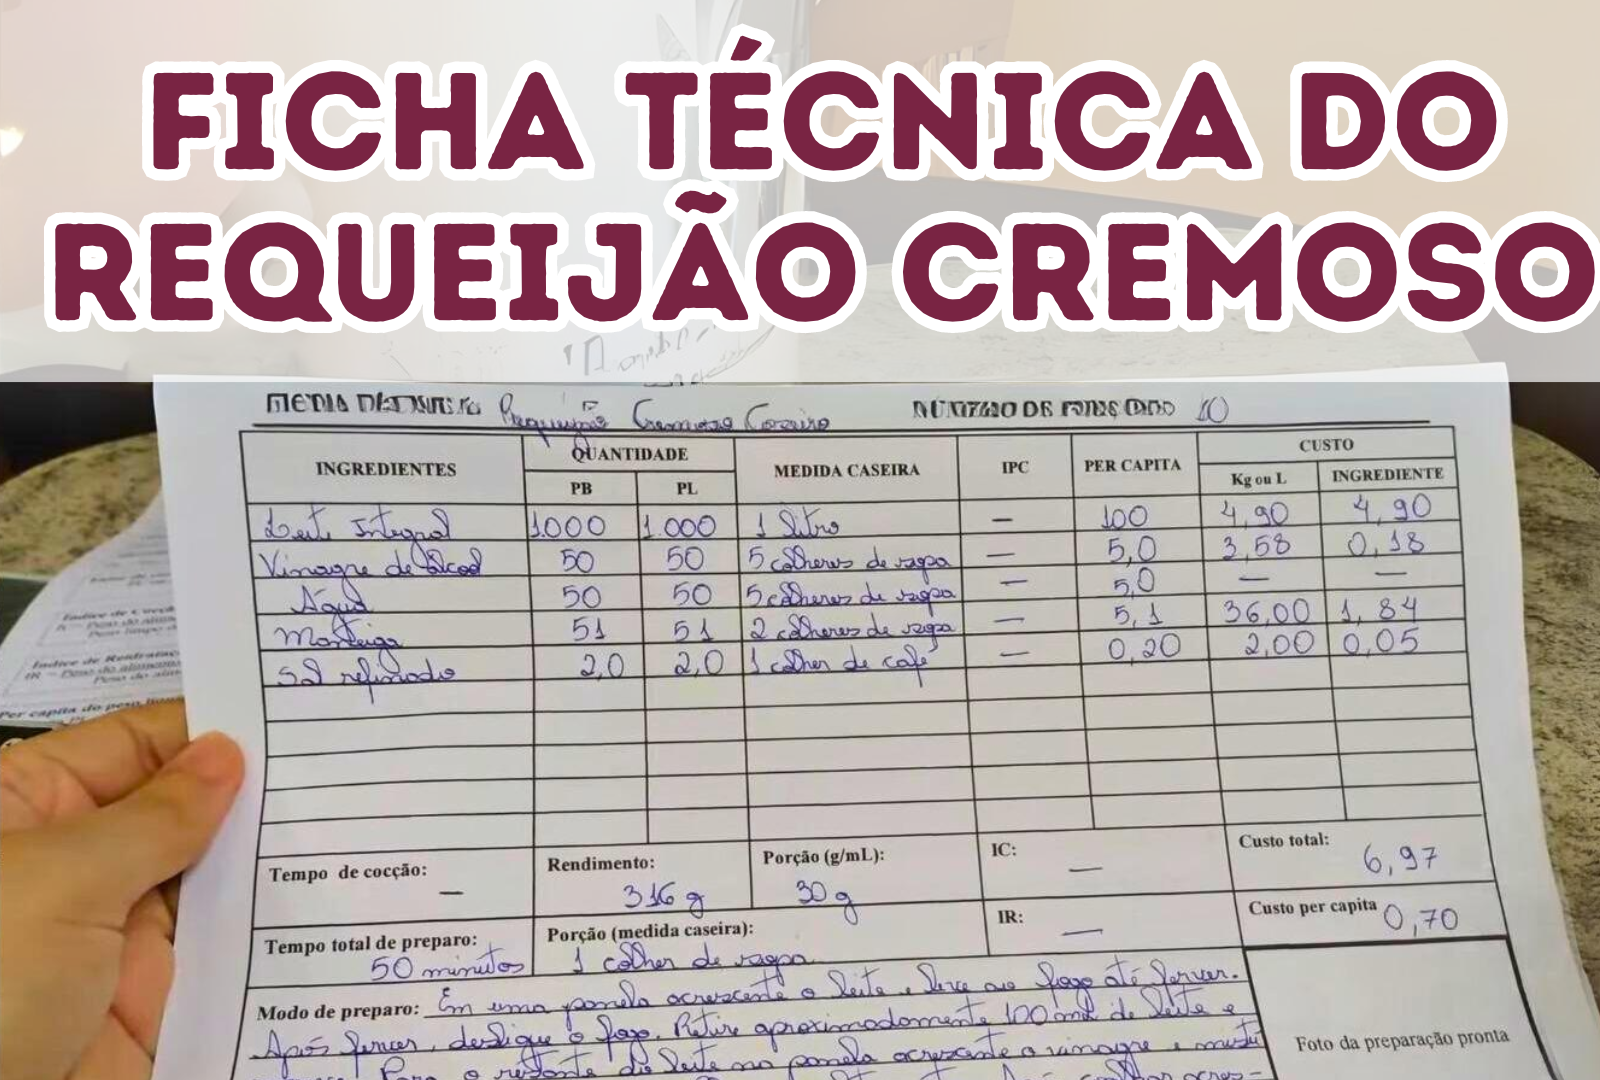 FICHA TÉCNICA DO
REQUEIJÃO CREMOSO
Requeijão Cremoso Caseiro 10
INGREDIENTES QUANTIDADE MEDIDA CASEIRA IPC PER CAPITA CUSTO
PB PL Kg ou L INGREDIENTE
Leite Integral 1.000 1.000 1 litro — 100 4,90 4,90
Vinagre de álcool 50 50 5 colheres de sopa — 5,0 3,58 0,18
Água 50 50 5 colheres de sopa — 5,0 — —
Manteiga 51 51 2 colheres de sopa — 5,1 36,00 1,84
Sal refinado 2,0 2,0 1 colher de café — 0,20 2,00 0,05
Tempo de cocção: — Rendimento: 316 g Porção (g/mL): 30 g IC: — Custo total: 6,97
Tempo total de preparo: 50 minutos Porção (medida caseira): 1 colher de sopa. IR: — Custo per capita 0,70
Modo de preparo: Em uma panela acrescente o leite e leve ao fogo até ferver.
Após ferver, desligue o fogo. Retire aproximadamente 100 ml de leite e
o restante do leite na panela acrescente o vinagre e
Foto da preparação pronta
Índice de Cocção
Índice de Reidratação
Per capita do peso